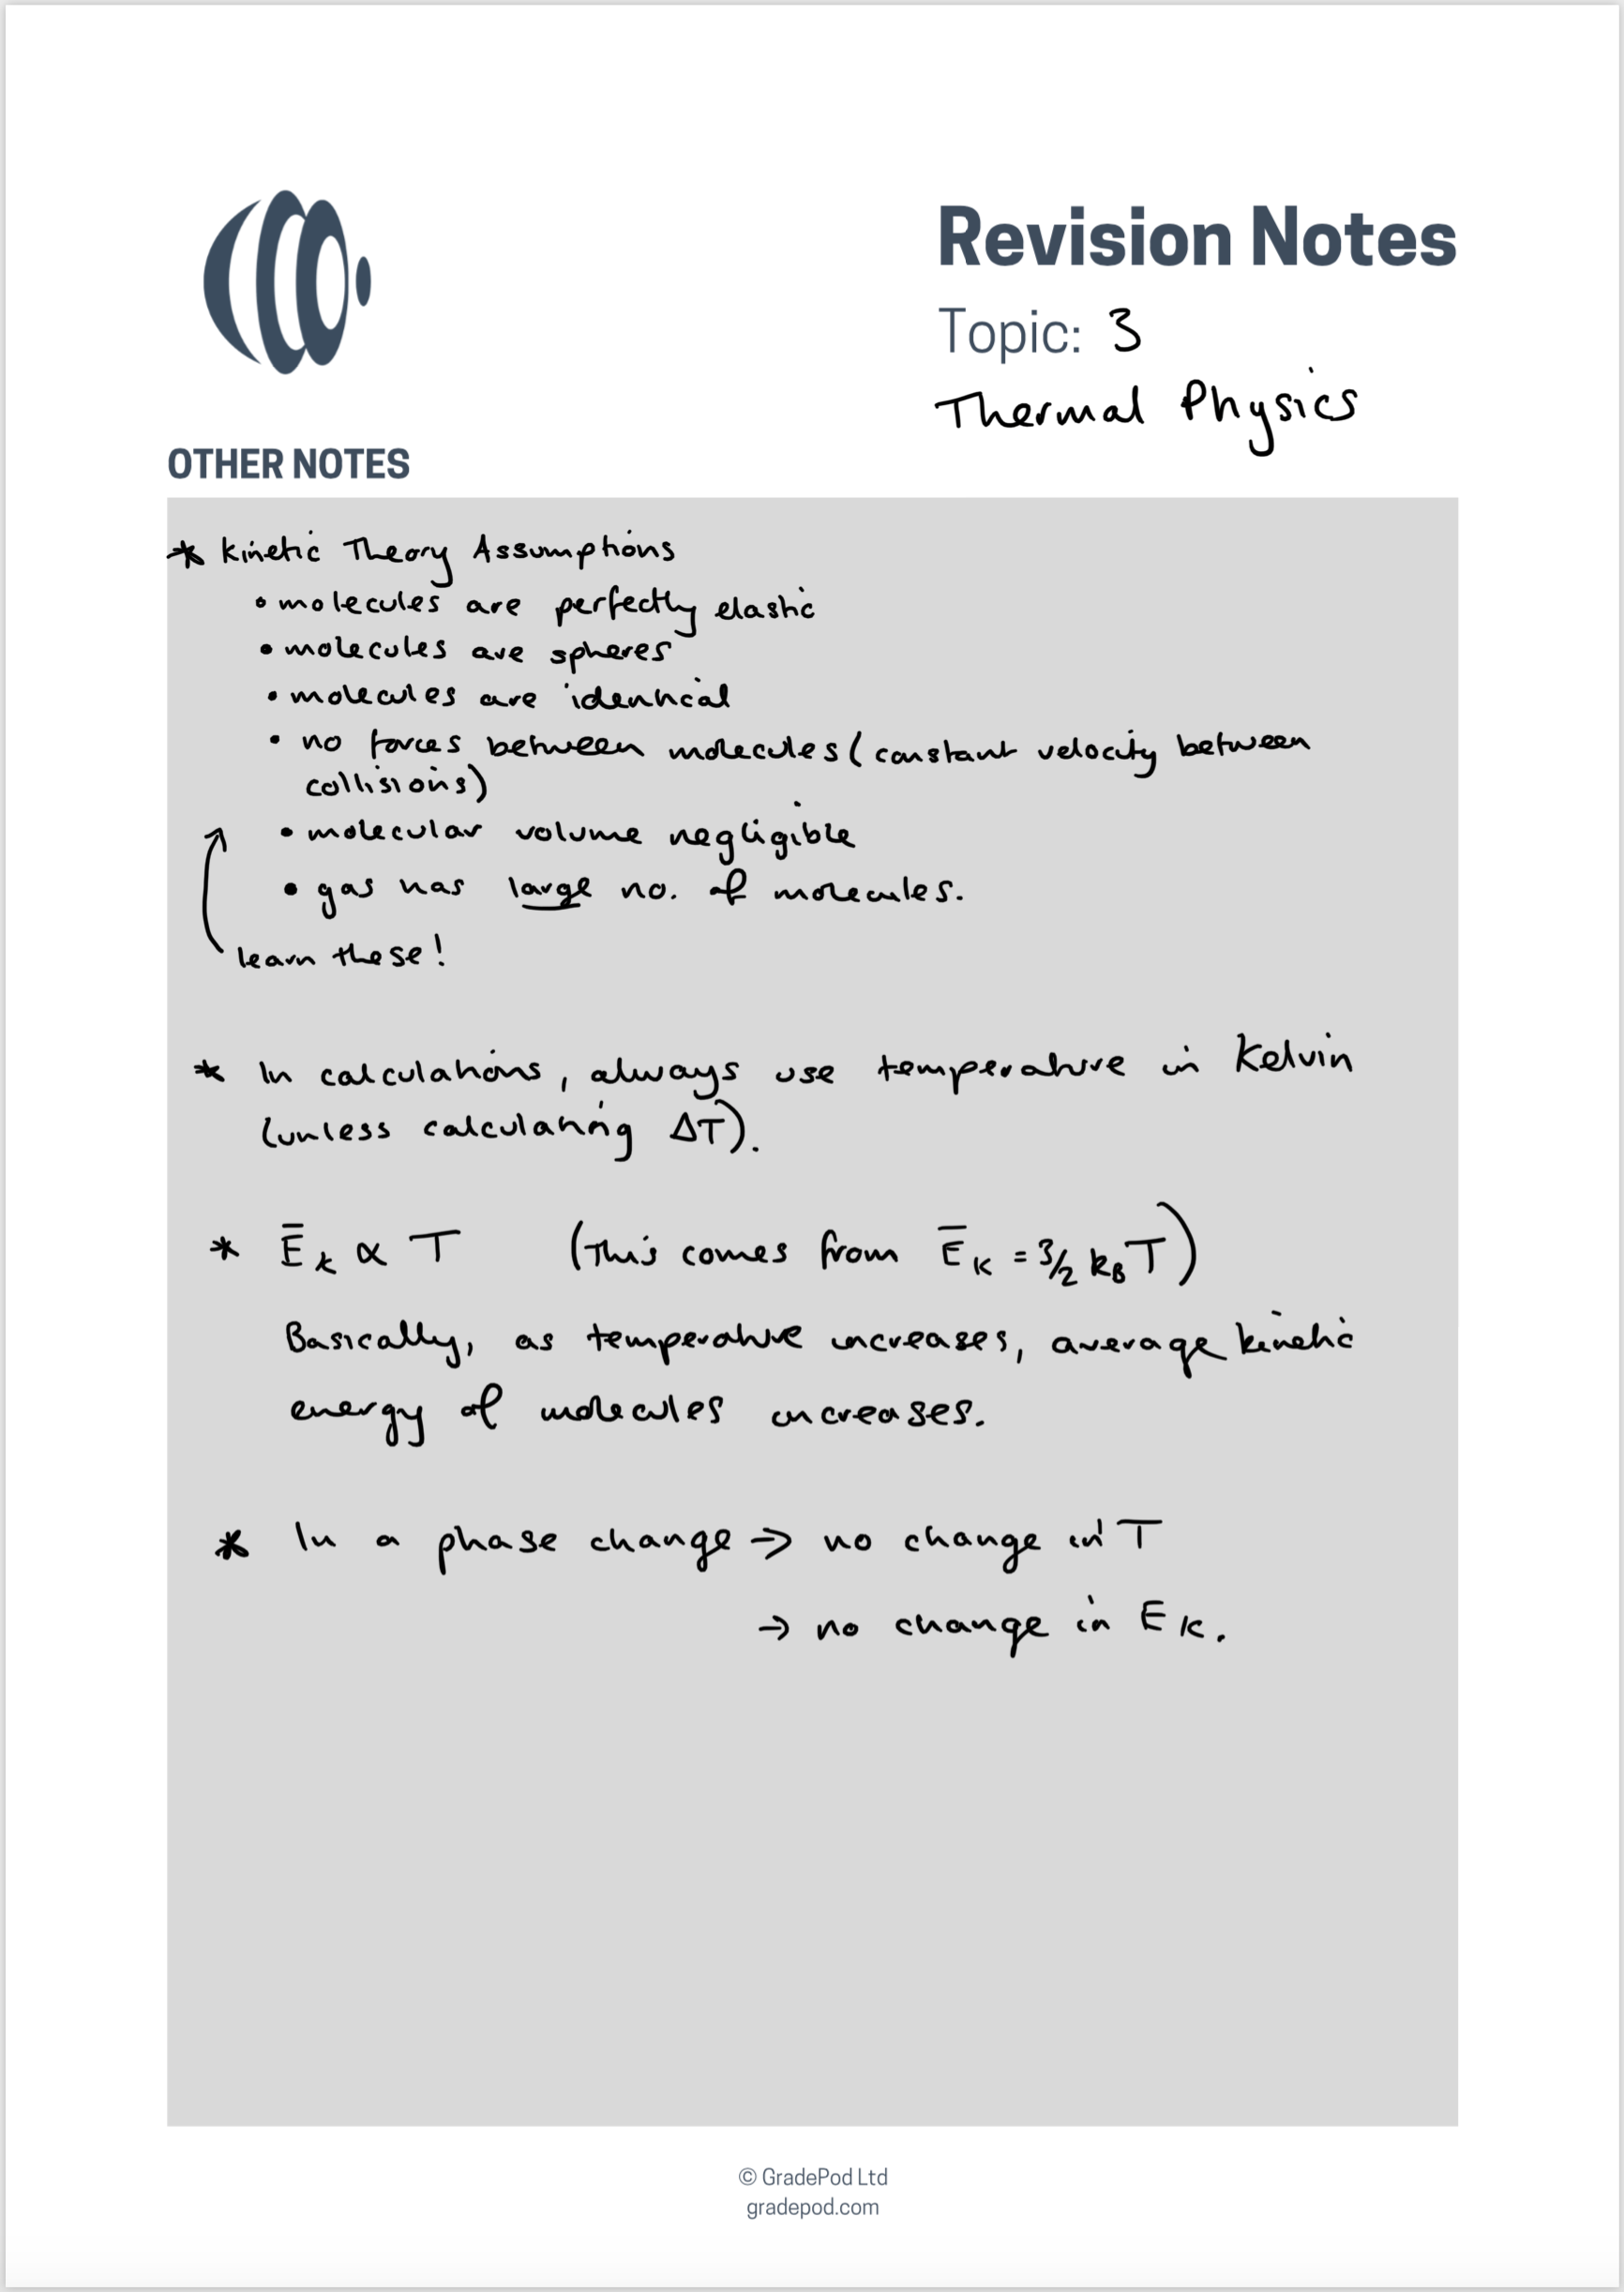 Revision Notes
Topic: 3
Thermal Physics
OTHER NOTES
* Kinetic Theory Assumptions
• molecules are perfectly elastic
• molecules are spheres
• molecules are identical
• no forces between molecules (constant velocity between
collisions)
• molecular volume negligible
• gas has large no. of molecules.
learn these!
* In calculations, always use temperature in Kelvin
(unless calculating ΔT).
* Ēk ∝ T (This comes from ĒK = 3/2 kBT)
Basically, as temperature increases, average kinetic
energy of molecules increases.
* In a phase change → no change in T
→ no change in EK.
© GradePod Ltd
gradepod.com